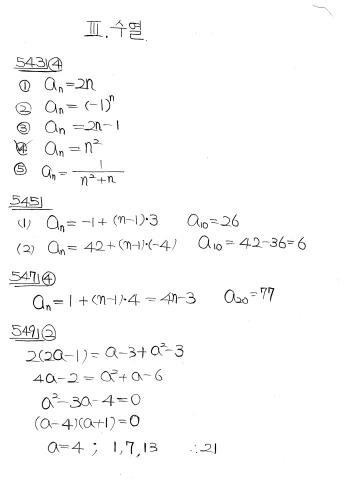 Ⅲ. 수열.
543) ④
① aₙ = 2n
② aₙ = (-1)ⁿ
③ aₙ = 2n-1
④ aₙ = n²
⑤ aₙ = 1/(n²+n)
545)
(1) aₙ = -1+(n-1)·3 a₁₀ = 26
(2) aₙ = 42+(n-1)·(-4) a₁₀ = 42-36=6
547) ④
aₙ = 1+(n-1)·4 = 4n-3 a₂₀ = 77
549) ②
2(2a-1) = a-3+a²-3
4a-2 = a²+a-6
a²-3a-4=0
(a-4)(a+1)=0
a=4 ; 1, 7, 13 ∴21